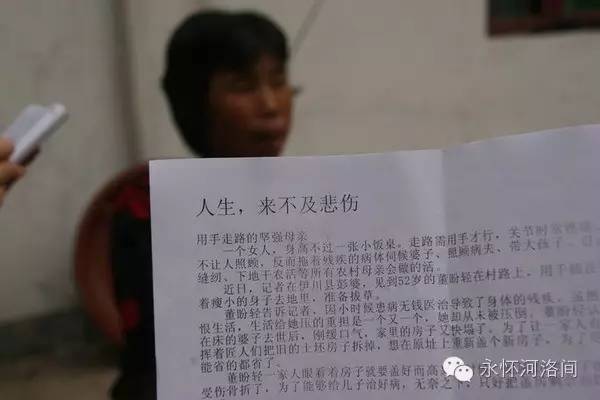 人生，来不及悲伤
用手走路的坚强母亲
一个女人，身高不过一张小饭桌。走路需用手才行，关节时常
不让人照顾，反而拖着残疾的病体伺候婆子、照顾病夫、带大孩子、
缝纫、下地干农活等所有农村母亲会做的活。
近日，记者在伊川县彭婆，见到52岁的董盼轻在村路上，用手
着瘦小的身子去地里，准备拔草。
董盼轻告诉记者，因小时候患病无钱医治导致了身体的残疾，虽然
恨生活，生活给她压的重担是一个又一个，她却从未被压倒。董盼轻
在床的婆子去世后，刚缓口气，家里的房子又快塌了，为了让一家人有
挥着匠人们把旧的土坯房子拆掉，想在原址上重新盖个新房子，为了
能省的都省了。
董盼轻一家人眼看着房子就要盖好而高
受伤骨折了，为了能够给儿子治好病，无奈之下，只好把盖房剩
永怀河洛间